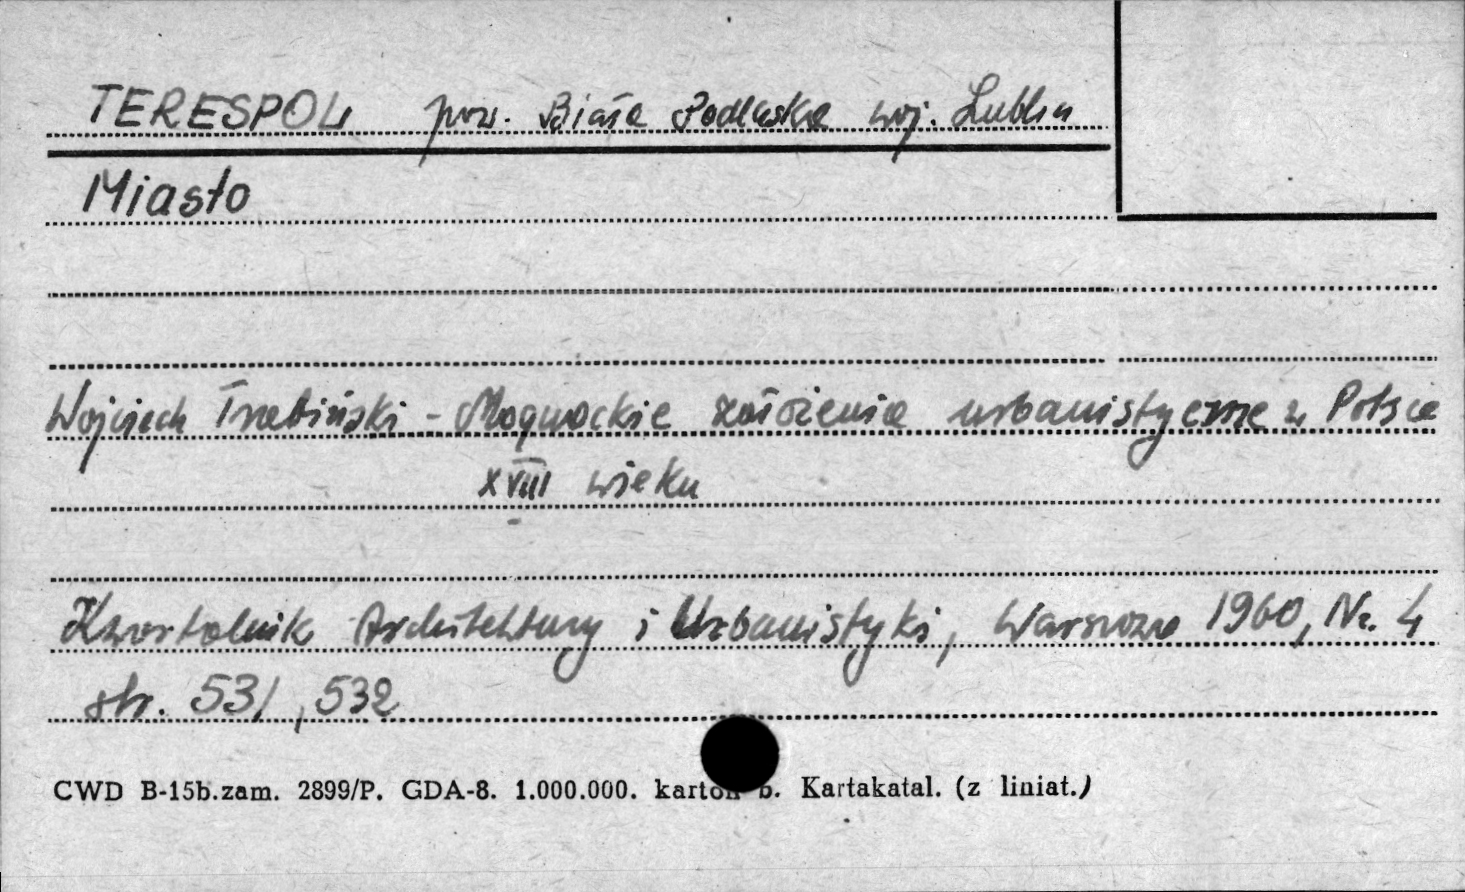 TERESPOL pow. Biała Podlaska woj. Lublin
Miasto
Wojciech Trzebiński - Magnackie założenia urbanistyczne w Polsce
XVIII wieku
Kwartalnik Architektury i Urbanistyki, Warszawa 1960, Nr. 4
str. 531, 532
CWD B-15b.zam. 2899/P. GDA-8. 1.000.000. karton b. Kartakatal. (z liniat.)